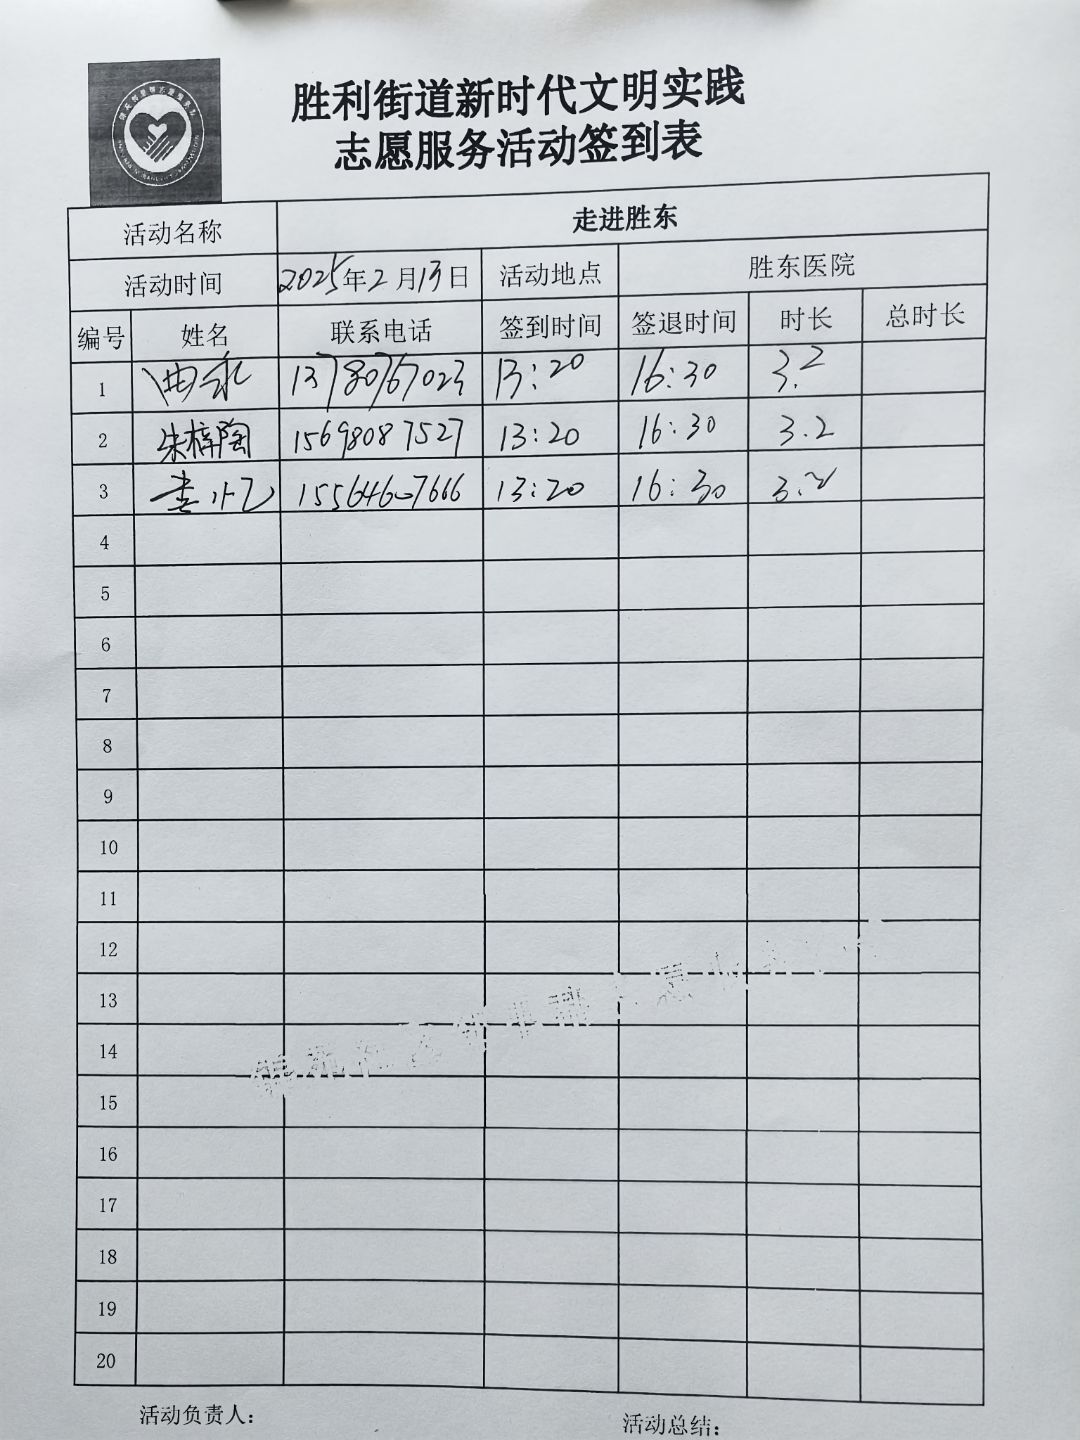 胜利街道新时代文明实践
志愿服务活动签到表
活动名称 走进胜东
活动时间 2025年2月13日 活动地点 胜东医院
编号 姓名 联系电话 签到时间 签退时间 时长 总时长
1 曲永 13780767023 13:20 16:30 3.2
2 朱梓陶 15698087527 13:20 16:30 3.2
3 13:20 16:30 3.2
4
5
6
7
8
9
10
11
12
13
14
15
16
17
18
19
20
活动负责人: 活动总结: